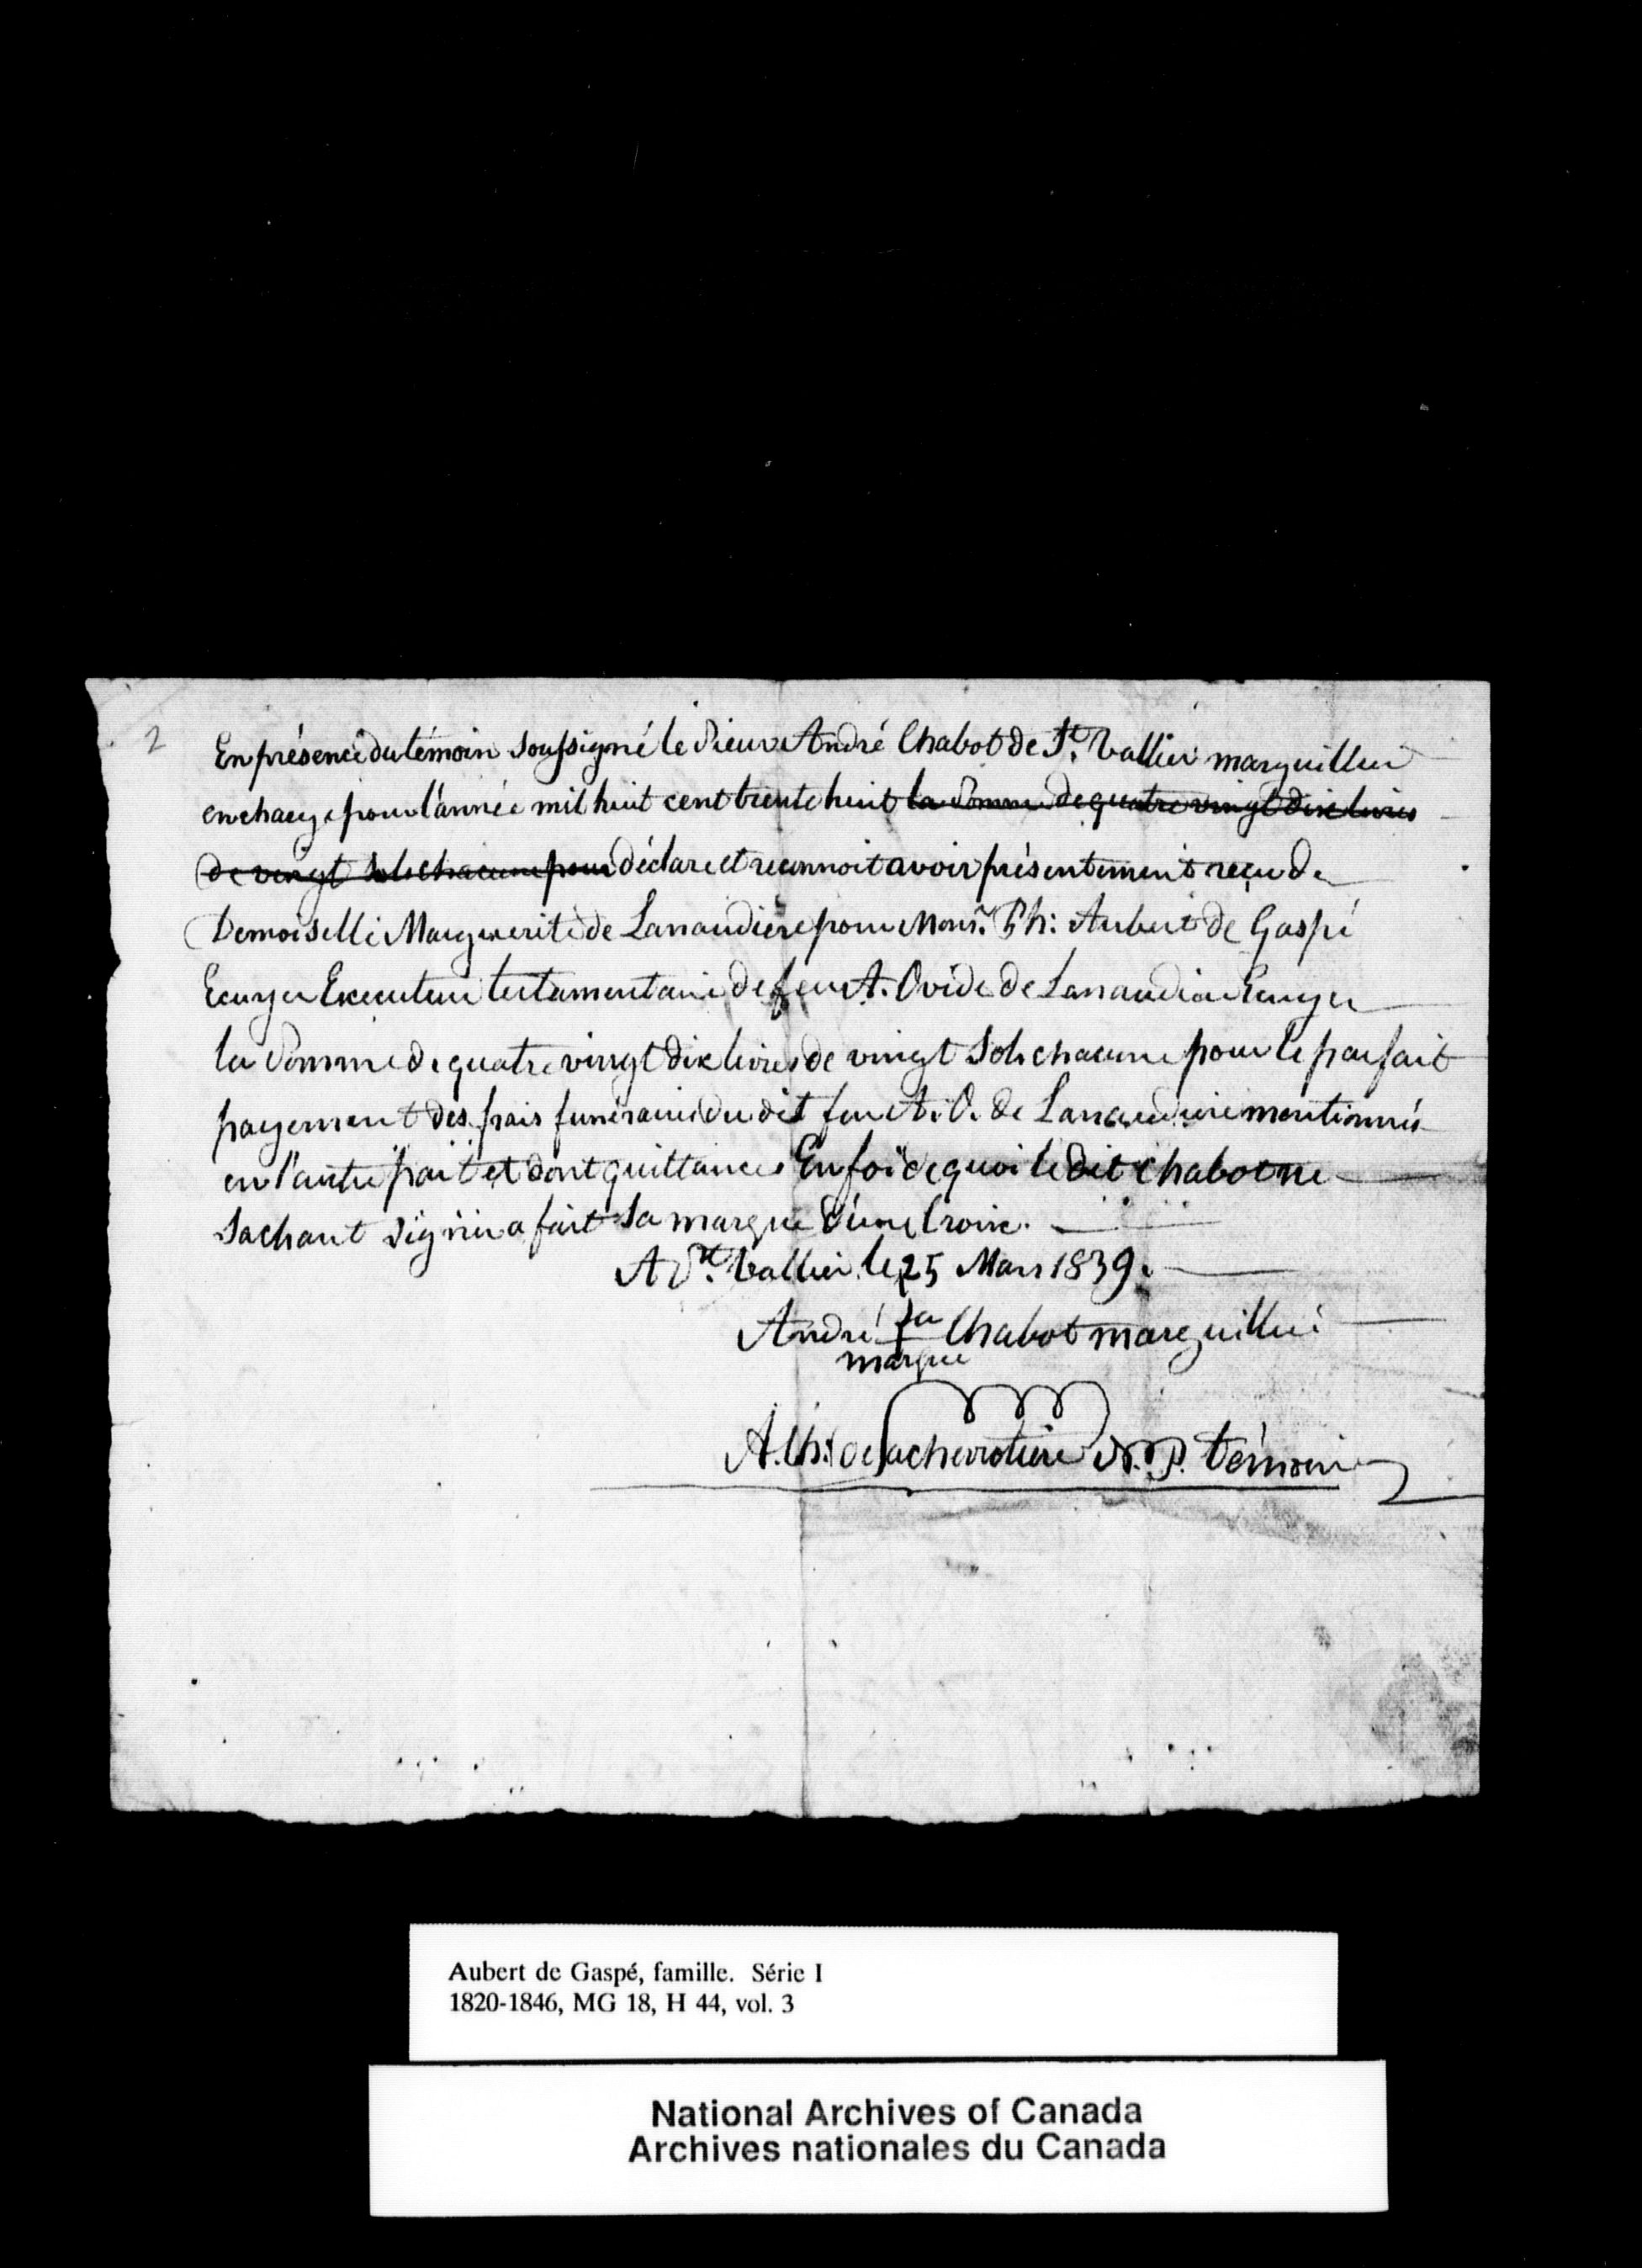 2
En présence du témoin soussigné le Sieur André Chabot de St. Vallier marguillier
en charge pour l'année mil huit cent trente huit la somme de quatre vingt dix livres
de vingt sols chacune pour déclare et reconnoit avoir présentement reçu de
Demoiselle Marguerite de Lanaudière pour Monsr. Ph: Aubert de Gaspé
Ecuyer Executeur testamentaire de feu A. Ovide de Lanaudière Ecuyer
la Somme de quatre vingt dix livres de vingt Sols chacune pour le parfait
payement des frais funéraires du dit feu A. O. de Lanaudière mentionnés
en l'autre part et dont quittances En foi de quoi le dit Chabot ne
Sachant Signer a fait sa marque d'une Croix.
A St. Vallier le 25 Mars 1839.
André sa + Chabot marguillier
marque
A. Ch: de Lachevrotière N. P. témoin
Aubert de Gaspé, famille. Série I
1820-1846, MG 18, H 44, vol. 3
National Archives of Canada
Archives nationales du Canada